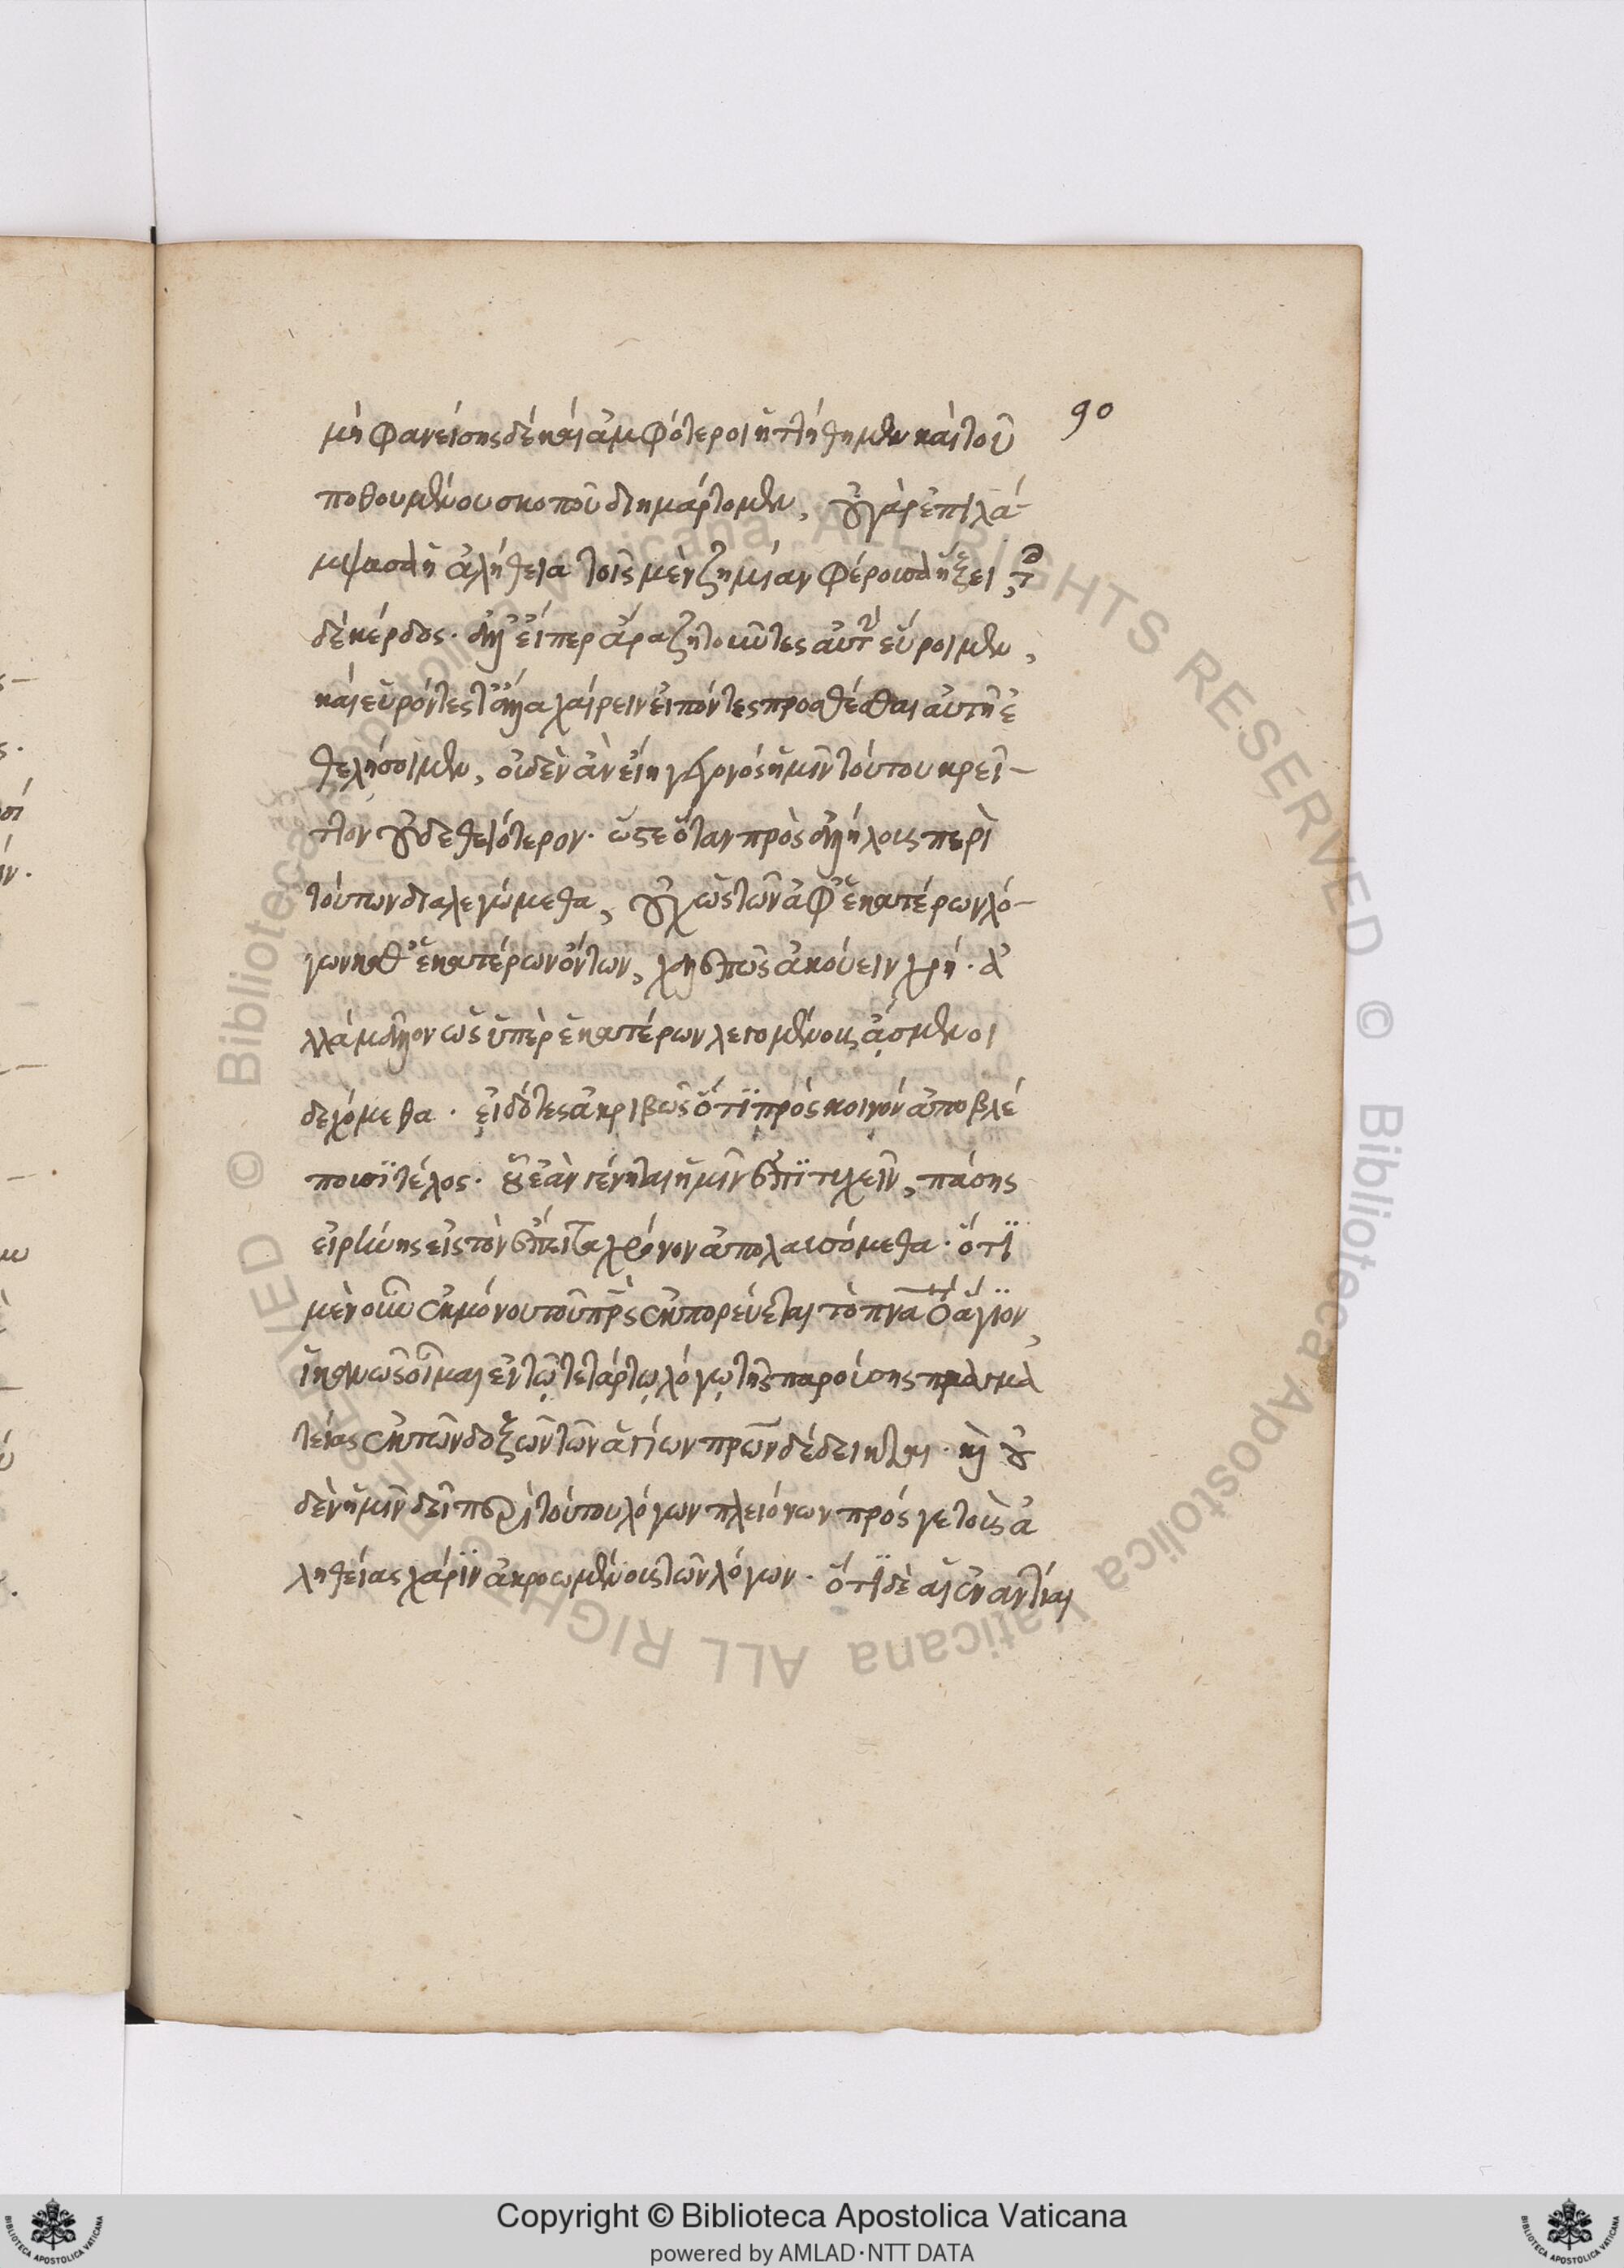 90
μὴ φανείσης δὲ καὶ ἀμφότεροι ἡττήθημεν καὶ τοῦ
ποθουμένου σκοποῦ διημάρτομεν, οὐ γὰρ ἐπιλά-
μψασα ἡ ἀλήθεια τοῖς μὲν ζημίαν φέρουσα ἥξει, τοῖς
δὲ κέρδος. ἀλλ' εἴπερ ἄρα ζητοῦντες αὐτὴν εὕροιμεν,
καὶ εὑρόντες τἄλλα χαίρειν εἰπόντες προσθέσθαι αὐτῇ ἐ
θελήσοιμεν, οὐδὲν ἂν εἴη γεγονὸς ἡμῖν τούτου κρεῖ-
ττον οὐδὲ θειότερον. ὥστε ὅταν πρὸς ἀλλήλους περὶ
τούτων διαλεγώμεθα, οὐχ ὡς τῶν ἀφ' ἑκατέρων λό-
γων καθ' ἑκατέρων ὄντων, λοιπῶς ἀκούειν χρή. ἀ
λλὰ μᾶλλον ὡς ὑπὲρ ἑκατέρων λεγομένους ἄσμενοι
δεχόμεθα. εἰδότες ἀκριβῶς ὅτϊ πρὸς κοινὸν ἀποβλέ
πουσϊ τέλος. οὗ ἐὰν γένηται ἡμῖν ἐπϊτυχεῖν, πάσης
εἰρήνης εἰς τὸν ἔπειτα χρόνον ἀπολαυσόμεθα. ὅτϊ
μὲν οὖν ἐκ μόνου τοῦ πρς ἐκπορεύεται τὸ πνα τὸ ἅγϊον,
ἱκανῶς οἶμαι ἐν τῷ τετάρτῳ λόγῳ τῆς παρούσης πραγμα
τείας ἐκ τῶν δοξῶν τῶν ἁγίων πρων δέδεικται. καὶ οὐ
δὲν ἡμῖν δεῖ περὶ τούτου λόγων πλειόνων πρός γε τοὺς ἀ
ληθείας χάρϊν ἀκροωμένους τῶν λόγων. ὅτϊ δὲ αἱ ἐναντίαι
Copyright © Biblioteca Apostolica Vaticana
powered by AMLAD·NTT DATA